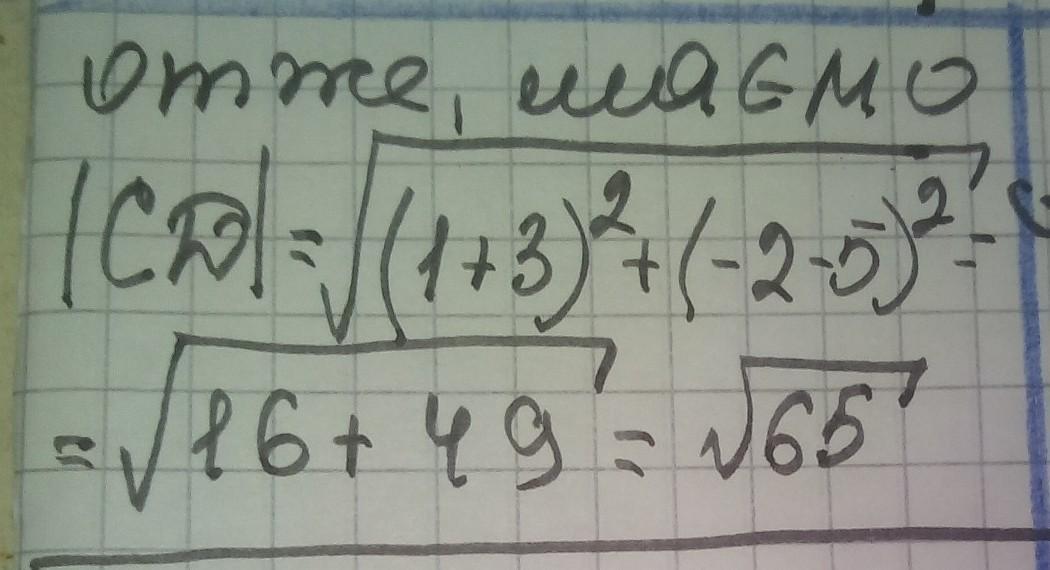 отже, маємо
|CD| = √(1+3)² + (-2-5)² =
= √16 + 49 = √65